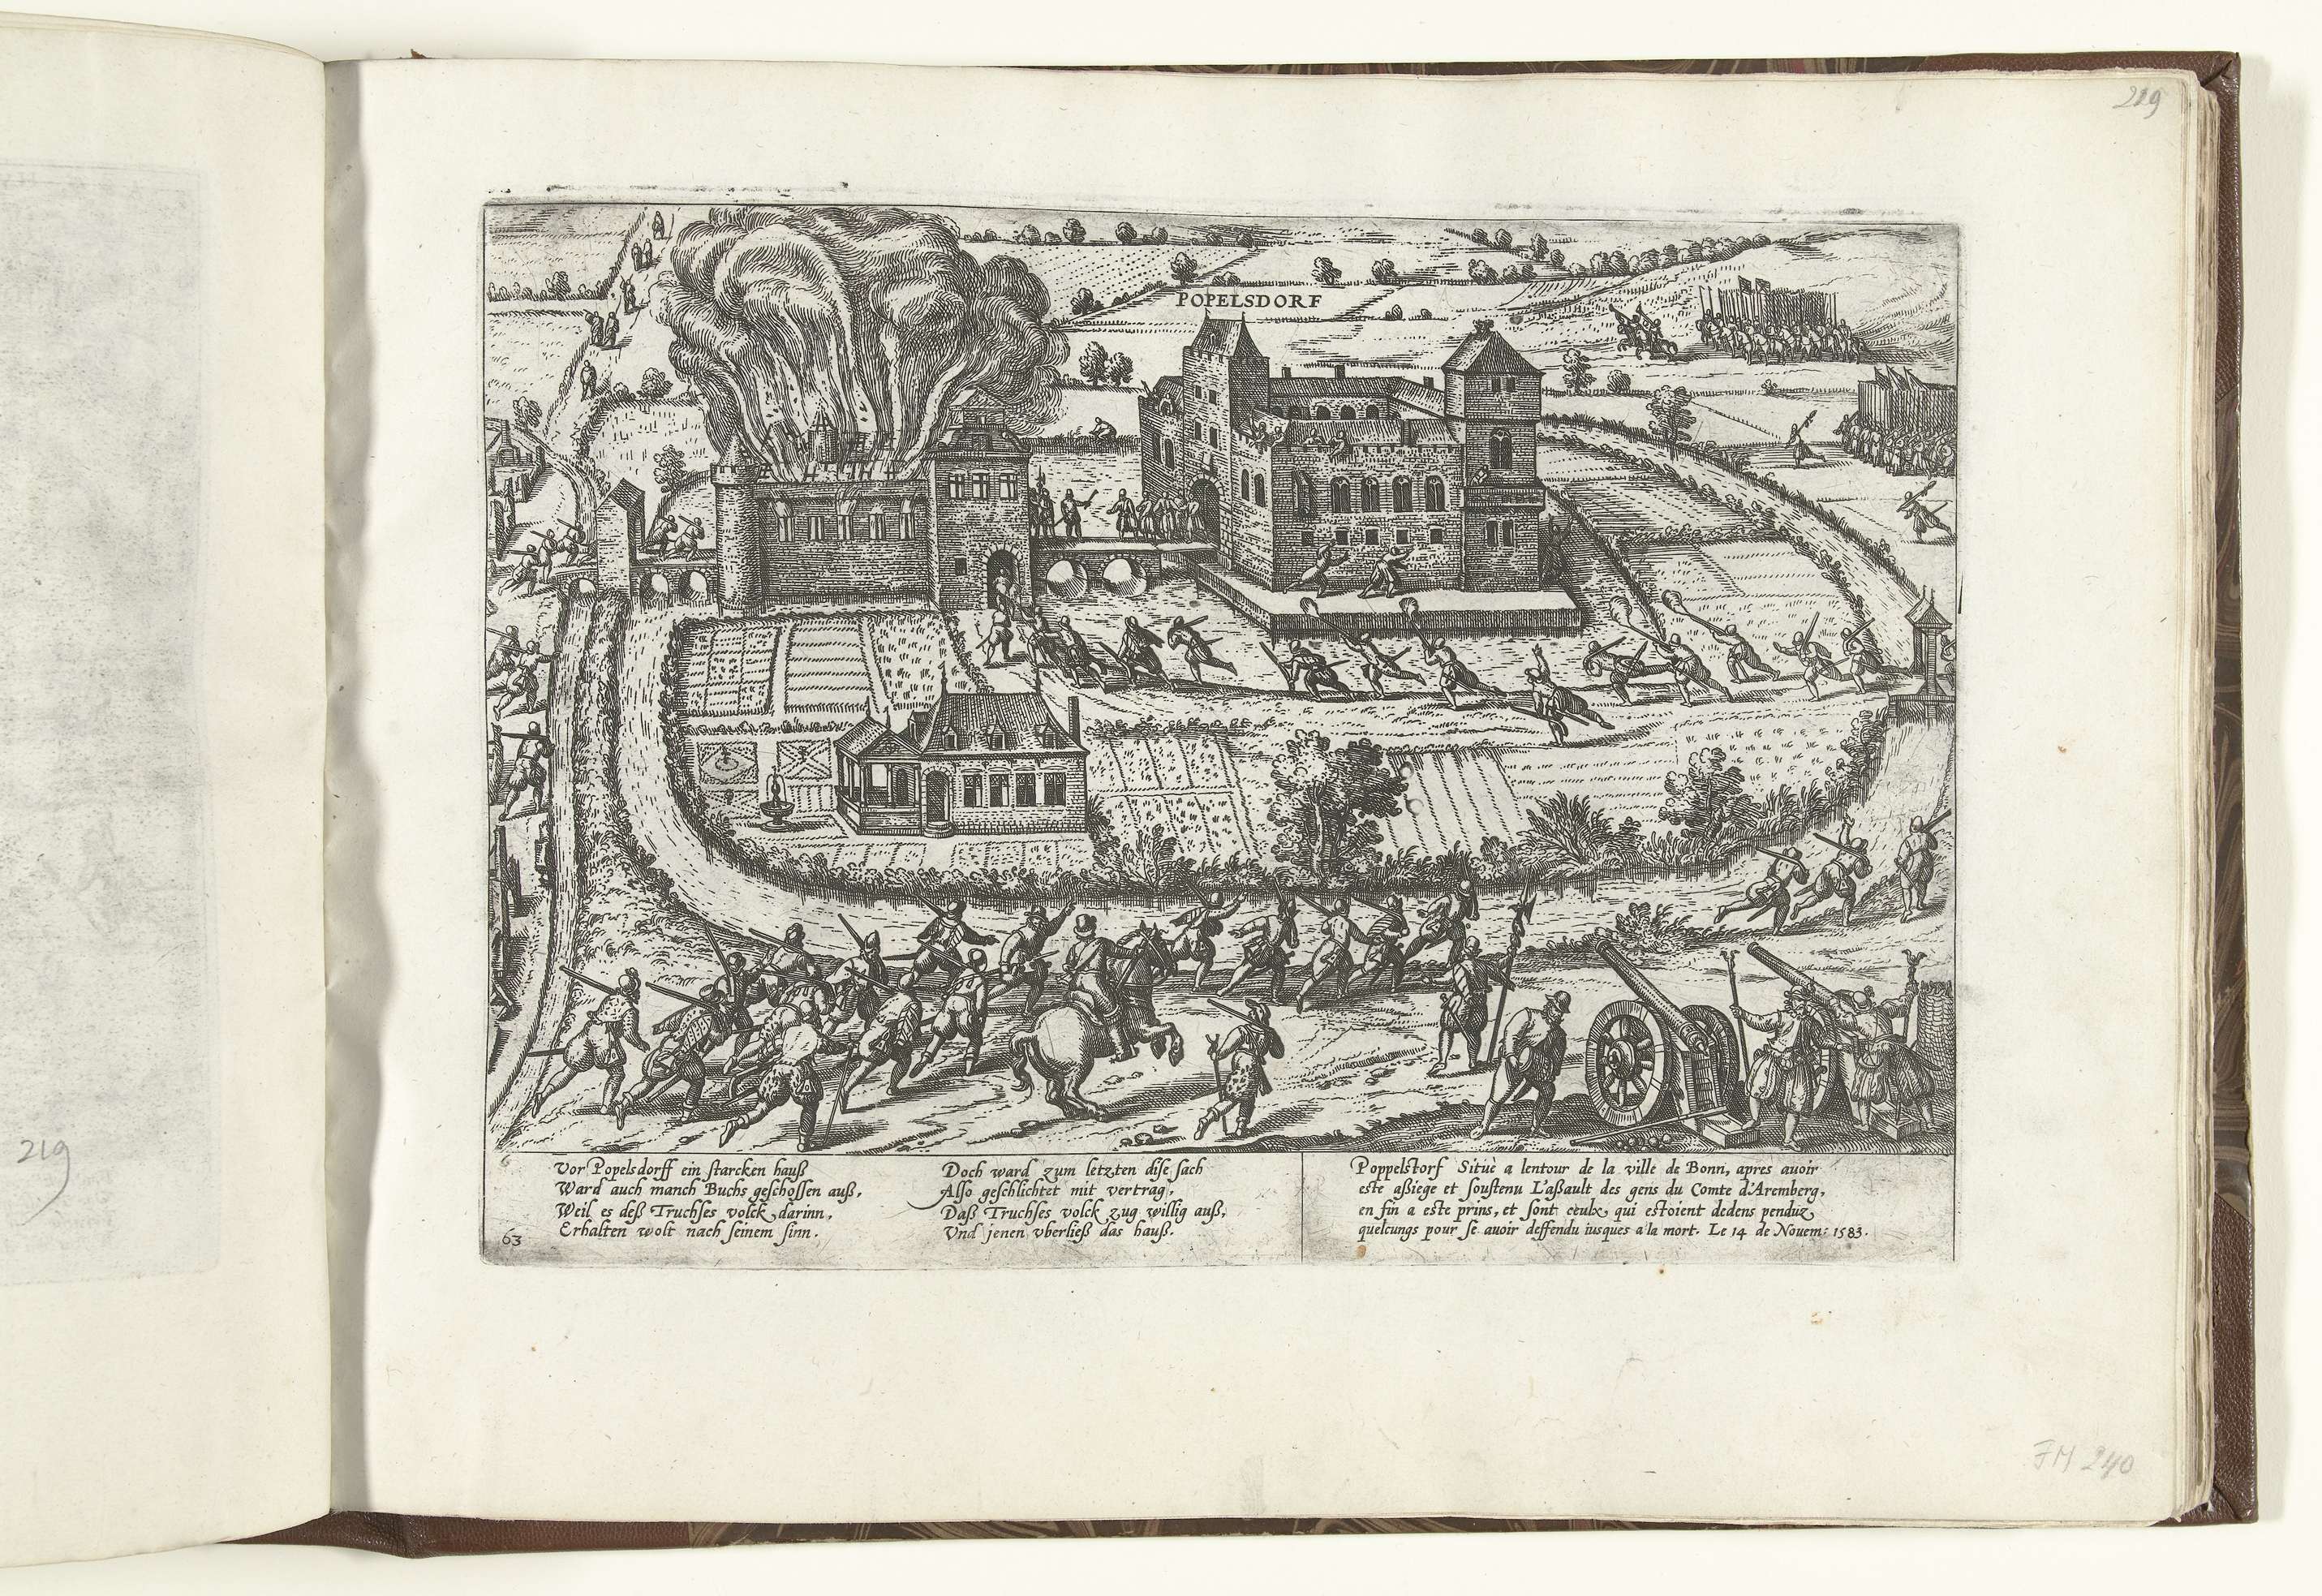 219
219
POPELSDORF
6
Vor Popelsdorff ein starcken hauß
Ward auch manch Buchs geschossen auß,
Weil es deß Truchses volck darinn,
Erhalten wolt nach seinem sinn.
63
Doch ward zum letzten dise sach
Also geschlichtet mit vertrag,
Daß Truchses volck zug willig auß,
Vnd jenen vberließ das hauß.
Poppelstorf Situè a lentour de la ville de Bonn, apres auoir
este aßiege et soustenu L'aßault des gens du Comte d'Aremberg,
en fin a este prins, et sont ceulx qui estoient dedens penduz
quelcungs pour se auoir deffendu iusques a la mort. Le 14 de Nouem: 1583.
FM 240